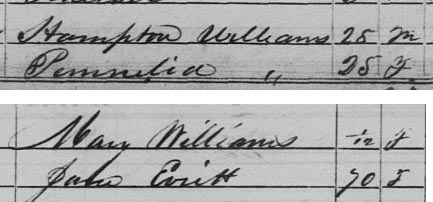 Hampton Williams 28 M
Permelia " 25 F
Mary Williams /12 F
Jane Evitt 70 F